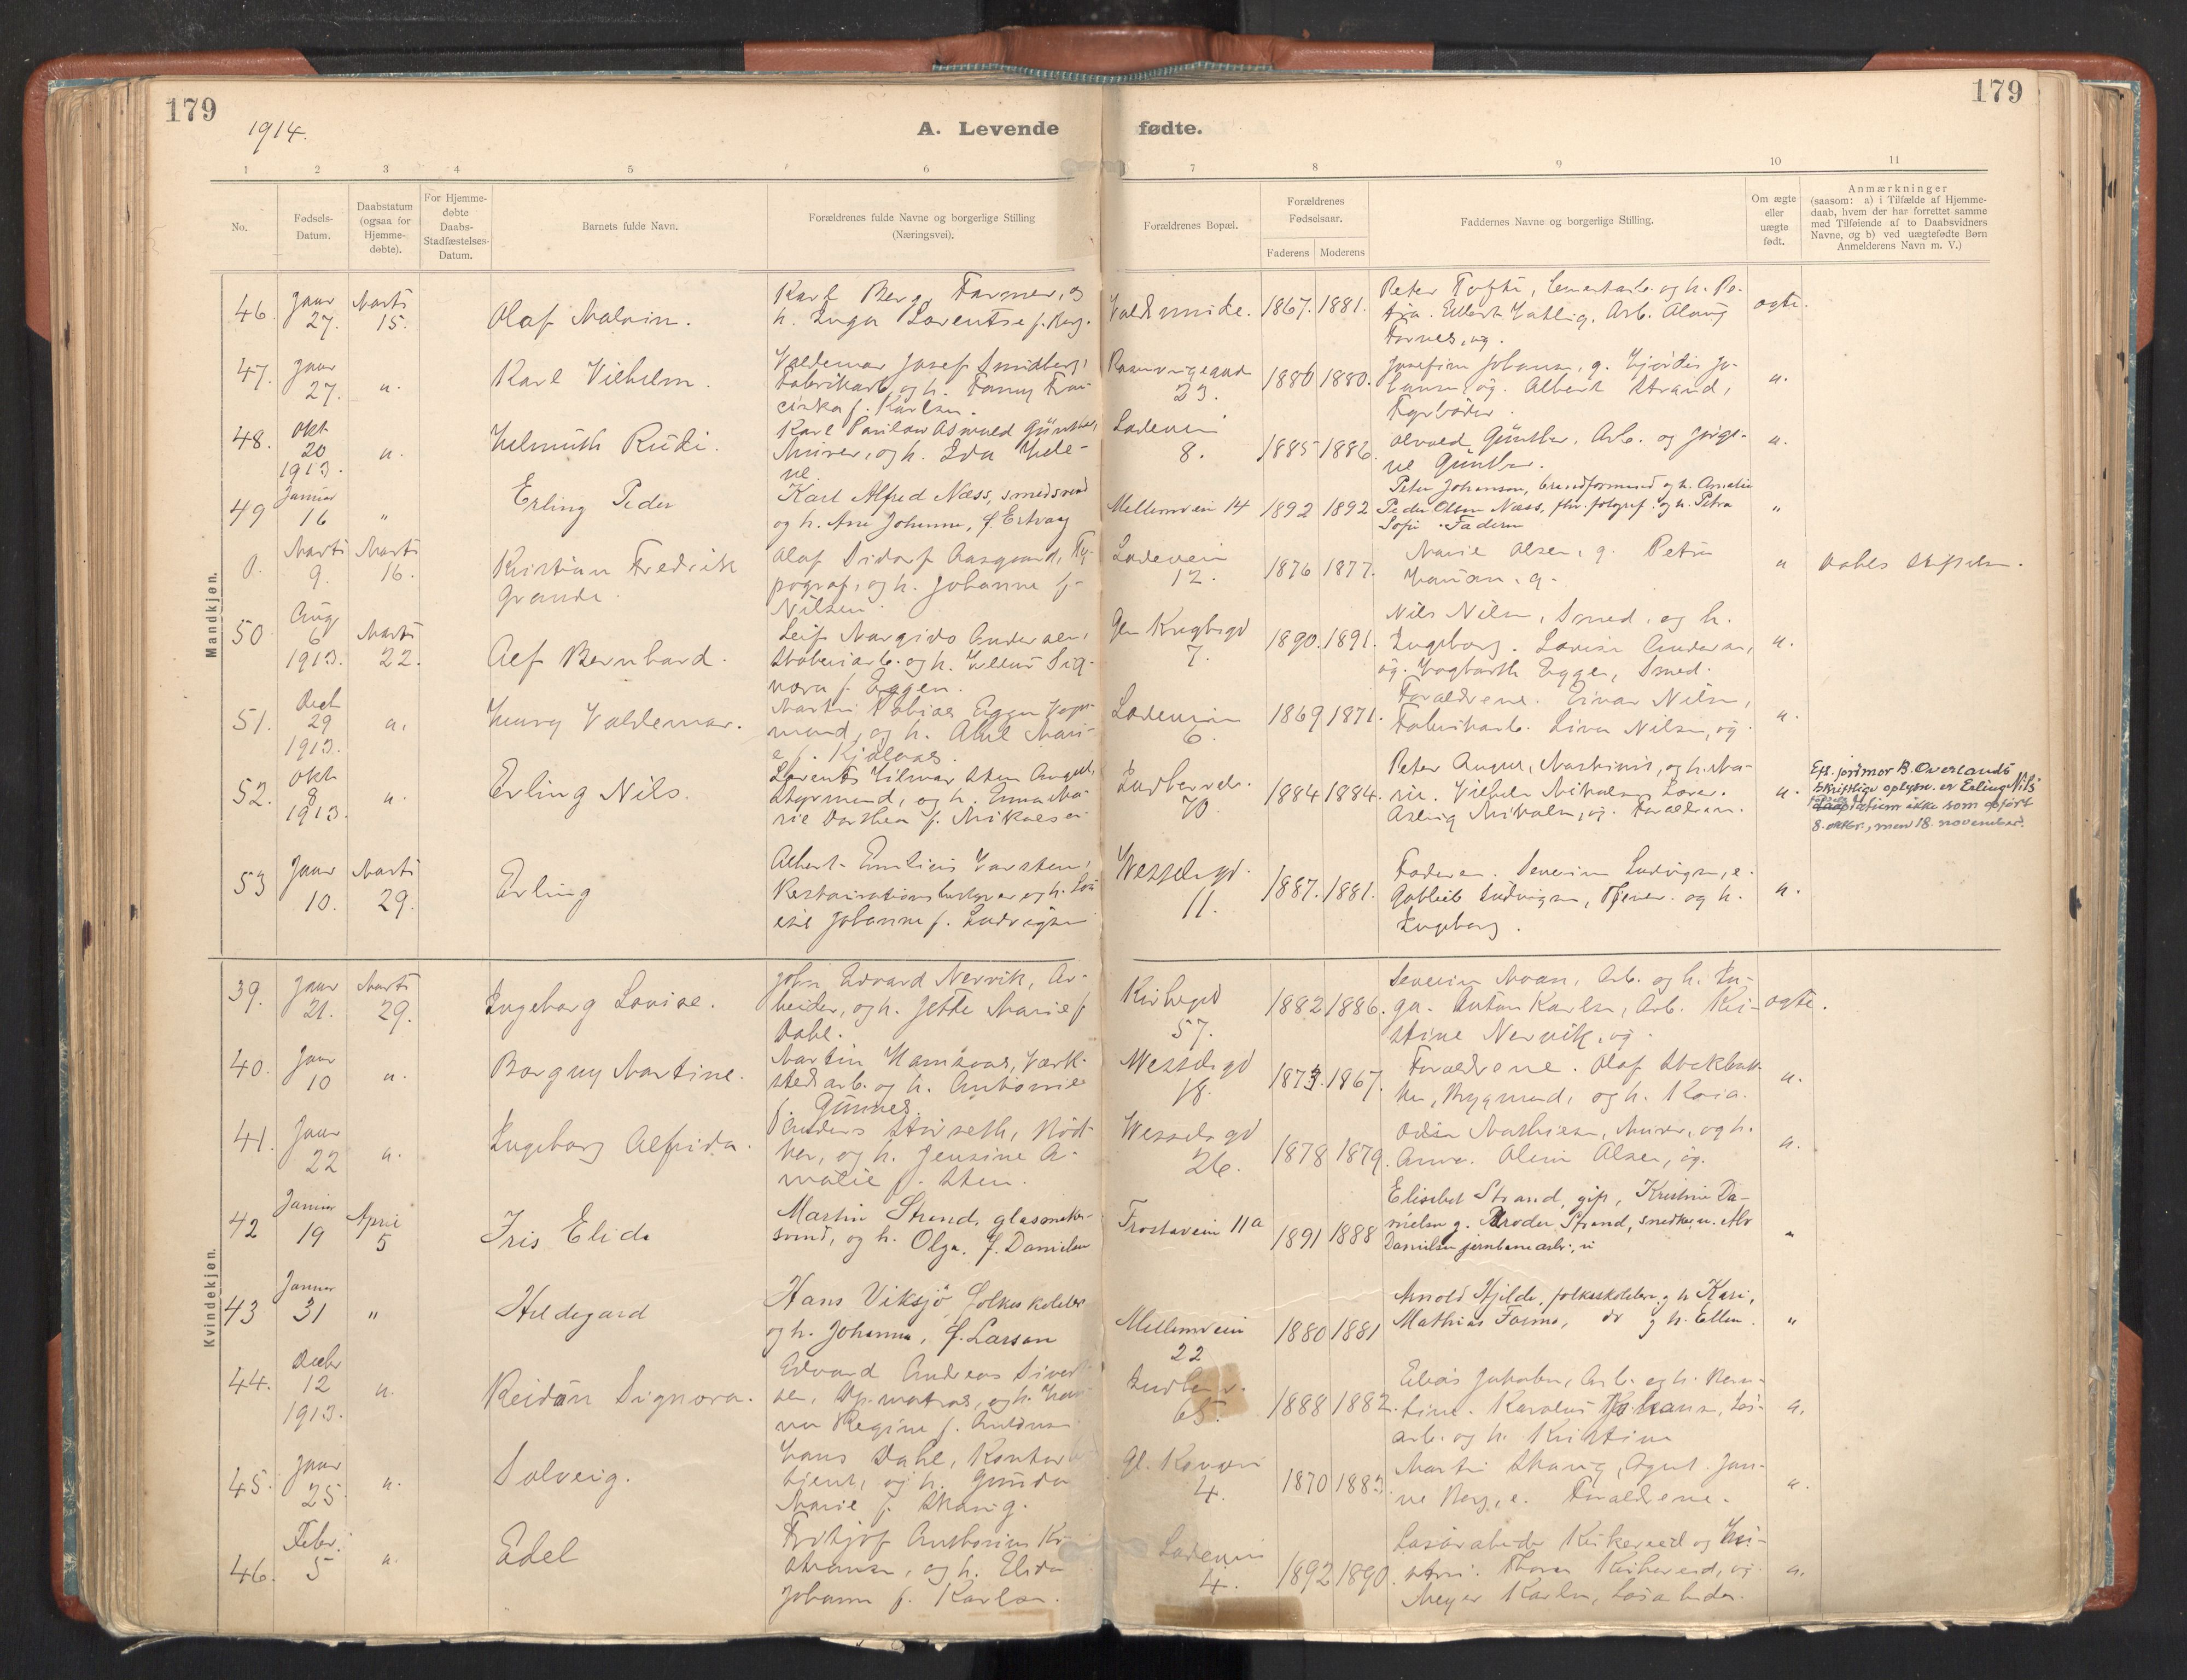 179
179
1914.
A. Levende fødte.
1 2 3 4 5 6 7 8 9 10 11
No.
Fødsels-
Datum.
Daabstatum
(ogsaa for
Hjemme-
døbte).
For Hjemme-
døbte
Daabs-
Stadfæstelses-
Datum.
Barnets fulde Navn.
Forældrenes fulde Navne og borgerlige Stilling
(Næringsvei).
Forældrenes Bopæl.
Forældrenes
Fødselsaar.
Faderens
Moderens
Faddernes Navne og borgerlige Stilling.
Om ægte
eller
uægte
født.
Anmærkninger
(saasom: a) i Tilfælde af Hjemme-
daab, hvem der har forrettet samme
med Tilføiende af to Daabsvidners
Navne, og b) ved uægtefødte Børn
Anmelderens Navn m. V.)
Mandkjøn.
46. Jaur 27. Marts 15.
Olaf Malvin.
Karl Berg, Farmer, og
h. Inga Lorentse f. Berg.
1867. 1881.
Peter Tofte,
og h. Pe-
tra.
47. Jaur 27. "
Karl Vilhelm.
Valdemar Josef Smidberg,
Fabrikarb. og h. Fanny Fran-
ciska f. Karlsen.
23.
1886 1880.
Josefine Johansen, g. Hjørdis Jo-
hansen, ug. Albert Strand,
Fyrbøder.
"
48. Okt 20 1913. "
Helmuth Rudi.
Murer, og h. Ida Hele-
ne.
Ladeveien
8.
1885 1886.
Günther, Arb. og Jørgi-
ne Günther.
"
49 Januar 16 "
Erling Peder
Karl Alfred Næss, smedsvend
og h. Ane Johanne, f. Ertvaag
Mellemveien 14
1892 1892
Peter Johansen, brandformand og h. Amalie
Peder Olsen Næss, fhv. fotograf og h. Petra
Sofie. Faderen
"
0. Marts 9. Marts 16.
Kristian Fredrik
Grande.
Olaf Sidorf Aasgaard, Ty-
pograf, og h. Johanne f.
Nilsen.
Ladeveien
12.
1876 1877.
Marie Olsen, g. Petra
"
Dahls Stiftelse.
50. Aug 6 1913. Marts 22.
Alf Bernhard.
Leif Margido Andersen,
og h. Sig-
nora f. Eggen.
7.
1890. 1891.
Nils Nilsen, Smed, og h.
Ingeborg. Lovise Andersen,
ug. Hagbarth Eggen, Smed.
"
51. Decb 29 1913. "
Henry Valdemar.
Martin Tobias Eggen
mand, og h. Abel Mari-
e f. Kjelaas.
Ladeveien
6.
1869 1871.
Forældrene. Einar Nilsen,
Fabrikarb. Liva Nilsen, ug.
"
52. Okt 8 1913. "
Erling Nils.
Lorents Hilmar Sten August,
Styrmand, og h. Emma Ma-
rie Dorthea f. Mikalsen
70.
1884 1884.
Peter August, Maskinist, og h. Ma-
rie. Vilhelm Mikalsen,
Aslaug Mikalsen, ug. Forældrene.
"
Eft. jordmor B. Overlands
skriftlige oplysn. er Erling Nils
datum ikke som opført
8. oktbr., men 18. november.
53 Jaur 10. Marts 29.
Erling
Albert Emilius Karsten,
Restaurationsbestyrer og h. Lov
isie Johanne f. Ludvigsen
Wesselsgd.
11.
1887. 1881.
Faderen. Severin Ludvigsen, e.
Gotlieb Ludvigsen, og h.
Ingeborg.
"
Kvindekjøn.
39. Jaur 21. Marts 29.
Ingeborg Lovise.
John Edvard Nervik, Ar-
beider, og h. Jette Marie f.
Dahl.
Kirkegd
57.
1882 1886.
Severin Moan, Arb. og h. In-
ga. Anton Karlsen, Arb. Kri-
stine Nervik, ug.
ægte.
40. Jaur 10 "
Borgny Martine.
Martin Hamsaas, Værk-
stedarb. og h. Antonie
f. Gunnes.
Wesselsgd
18.
1873. 1867.
Forældrene. Olaf
Bygmend, og h. Kaia.
"
41. Jaur 22 "
Ingeborg Alfrida.
Anders Størseth, Bød-
ker, og h. Jensine A-
malie f. Sten.
Wesselsgd
26.
1878 1879.
Odin Mathiesen, Murer, og h.
Anna. Oline Olsen, ug.
"
42 Januar 19 April 5
Iris Elida
Martin Strand, glasmaker-
svend, og h. Olga, f. Danielsen
Frostaveien 11a
1891 1888
Elisabet Strand, gift, Kristine Da-
nielsen g. Broder Strand, snedker, u. Alv
Danielsen jernbanearb., u
"
43 Januar 31 "
Hildegard
Hans Viksjø, folkeskolelærer
og h. Johanna, f. Larsen
Mellemveien
22
1880 1881
Arnold Hjelde, folkeskolelær. og h Kari,
Mathias Formo, do og h. Ellen.
"
44. Decbr 12 1913. "
Reidun Signora.
Edvard Andreas Sivert-
sen, og h. Han-
na Regine f.
65.
1888 1882.
Elias Jakobsen, Arb. og h. Ben-
tine. Karolus Johansen, Løs-
arb. og h. Kristine
"
45. Jaur 25 "
Solveig.
Hans Dahl, Kontor
bjent, og h. Gunda
Marie f. Skaug.
4.
1870 1883.
Martin Skaug, Agent. Jen-
ne Berg, e. Forældrene.
"
46. Febr. 5 "
Edel
Fritjof Anthonius Kri-
stiansen, og h. Elida
Johanne f. Karlsen.
Ladeveien
4.
1892 1890.
Løsarbeider Kirkereid og Kri-
stine. Thora Kirkereid, ug.
Meyer Karlsen, Løsarbeider.
"